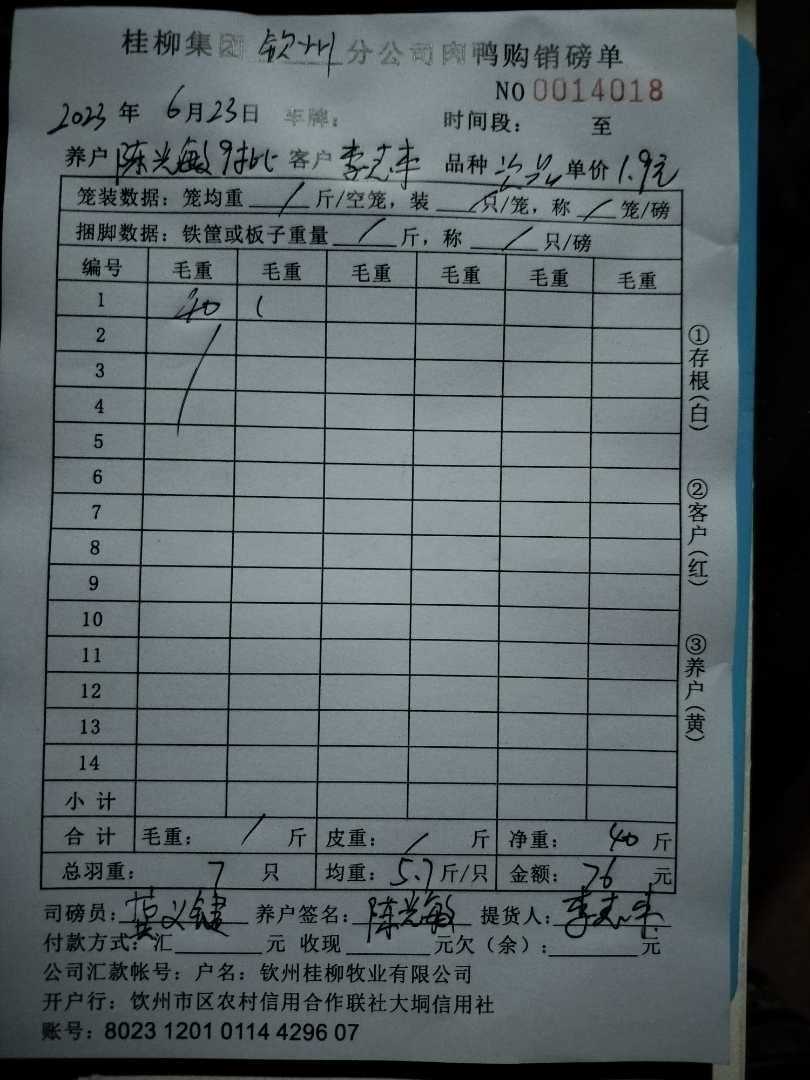 桂柳集团 钦州 分公司肉鸭购销磅单
NO 0014018
2023 年 6月23日 车牌： 时间段： 至
养户 陈光敏9批 客户 李志 品种 次品 单价 1.9元
笼装数据：笼均重 / 斤/空笼，装 / 只/笼，称 / 笼/磅
捆脚数据：铁筐或板子重量 / 斤，称 / 只/磅
编号 毛重 毛重 毛重 毛重 毛重 毛重
1 40
2
3
4
5
6
7
8
9
10
11
12
13
14
小 计
合 计 毛重： / 斤 皮重： / 斤 净重： 40 斤
总羽重： 7 只 均重：5.7斤/只 金额：76 元
司磅员： 养户签名：陈光敏 提货人：李志
付款方式：汇 元 收现 元欠（余）： 元
公司汇款帐号：户名：钦州桂柳牧业有限公司
开户行：钦州市区农村信用合作联社大垌信用社
账号：8023 1201 0114 4296 07
①存根（白）
②客户（红）
③养户（黄）